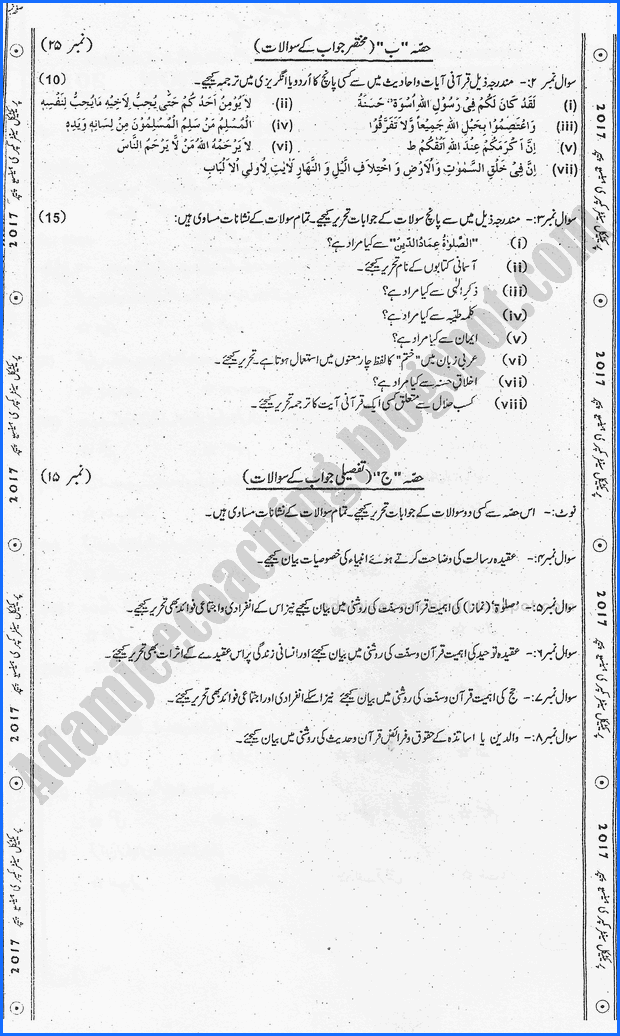 حصّہ "ب" (مختصر جواب کے سوالات) (نمبر ۲۵)
سوال نمبر ۲:- مندرجہ ذیل قرآنی آیات و احادیث میں سے کسی پانچ کا اُردو یا انگریزی میں ترجمہ کیجیے۔ (10)
(i) لَقَدْ كَانَ لَكُمْ فِى رَسُوْلِ اللّٰهِ اُسْوَةٌ حَسَنَةٌ (ii) لاَ يُؤْمِنُ اَحَدُ كُمْ حَتّٰى يُحِبَّ لِاَخِيْهِ مَايُحِبُّ لِنَفْسِهِ
(iii) وَاعْتَصِمُوْا بِحَبْلِ اللّٰهِ جَمِيْعاً وَّلَا تَفَرَّقُوْا (iv) اَلْمُسْلِمُ مَنْ سَلِمَ الْمُسْلِمُوْنَ مِنْ لِسَانِهِ وَيَدِهِ
(v) اِنَّ اَكْرَمَكُمْ عِنْدَ اللّٰهِ اَتْقٰكُمْ ط (vi) لاَ يَرْحَمُهُ اللّٰهُ مَنْ لَّا يَرْحَمُ النَّاسَ
(vii) اِنَّ فِىْ خَلْقِ السَّمٰوٰتِ وَالْاَرْضِ وَ اخْتِلَافِ الَّيْلِ وَ النَّهَارِ لَاٰيٰتٍ لِّاُولِى الْاَلْبَابِ
سوال نمبر ۳:- مندرجہ ذیل میں سے پانچ سولات کے جوابات تحریر کیجیے۔ تمام سولات کے نشانات مساوی ہیں: (15)
(i) "الصَّلٰوةُ عِمَادُ الدِّيْنِ" سے کیا مراد ہے؟
(ii) آسمانی کتابوں کے نام تحریر کیجئے۔
(iii) ذکرِ الٰہی سے کیا مراد ہے؟
(iv) کلمہ طیّبہ سے کیا مراد ہے؟
(v) ایمان سے کیا مراد ہے؟
(vi) عربی زبان میں "ختم" کا لفظ چار معنوں میں استعمال ہوتا ہے۔ تحریر کیجئے۔
(vii) اخلاقِ حسنہ سے کیا مراد ہے؟
(viii) کسبِ حلال سے متعلق کسی ایک قرآنی آیت کا ترجمہ تحریر کیجئے۔
حصّہ "ج" (تفصیلی جواب کے سوالات) (نمبر ۱۵)
نوٹ:- اس حصّہ سے کسی دو سوالات کے جوابات تحریر کیجیے۔ تمام سوالات کے نشانات مساوی ہیں۔
سوال نمبر ۴:- عقیدہ رسالت کی وضاحت کرتے ہوئے انبیاء کی خصوصیات بیان کیجیے۔
سوال نمبر ۵:- 'صلوٰۃ' (نماز) کی اہمیت قرآن و سنّت کی روشنی میں بیان کیجیے نیز اس کے انفرادی و اجتماعی فوائد بھی تحریر کیجیے۔
سوال نمبر ۶:- عقیدہ توحید کی اہمیت قرآن و سنّت کی روشنی میں بیان کیجئے اور انسانی زندگی پر اس عقیدے کے اثرات بھی تحریر کیجئے۔
سوال نمبر ۷:- حج کی اہمیت قرآن و سنّت کی روشنی میں بیان کیجئے نیز اسکے انفرادی اور اجتماعی فوائد بھی تحریر کیجئے۔
سوال نمبر ۸:- والدین یا اساتذہ کے حقوق و فرائض قرآن و حدیث کی روشنی میں بیان کیجئے۔
Adamjeecoaching.blogspot.com
2017
2017
2017
2017
2017
2017
2017
2017